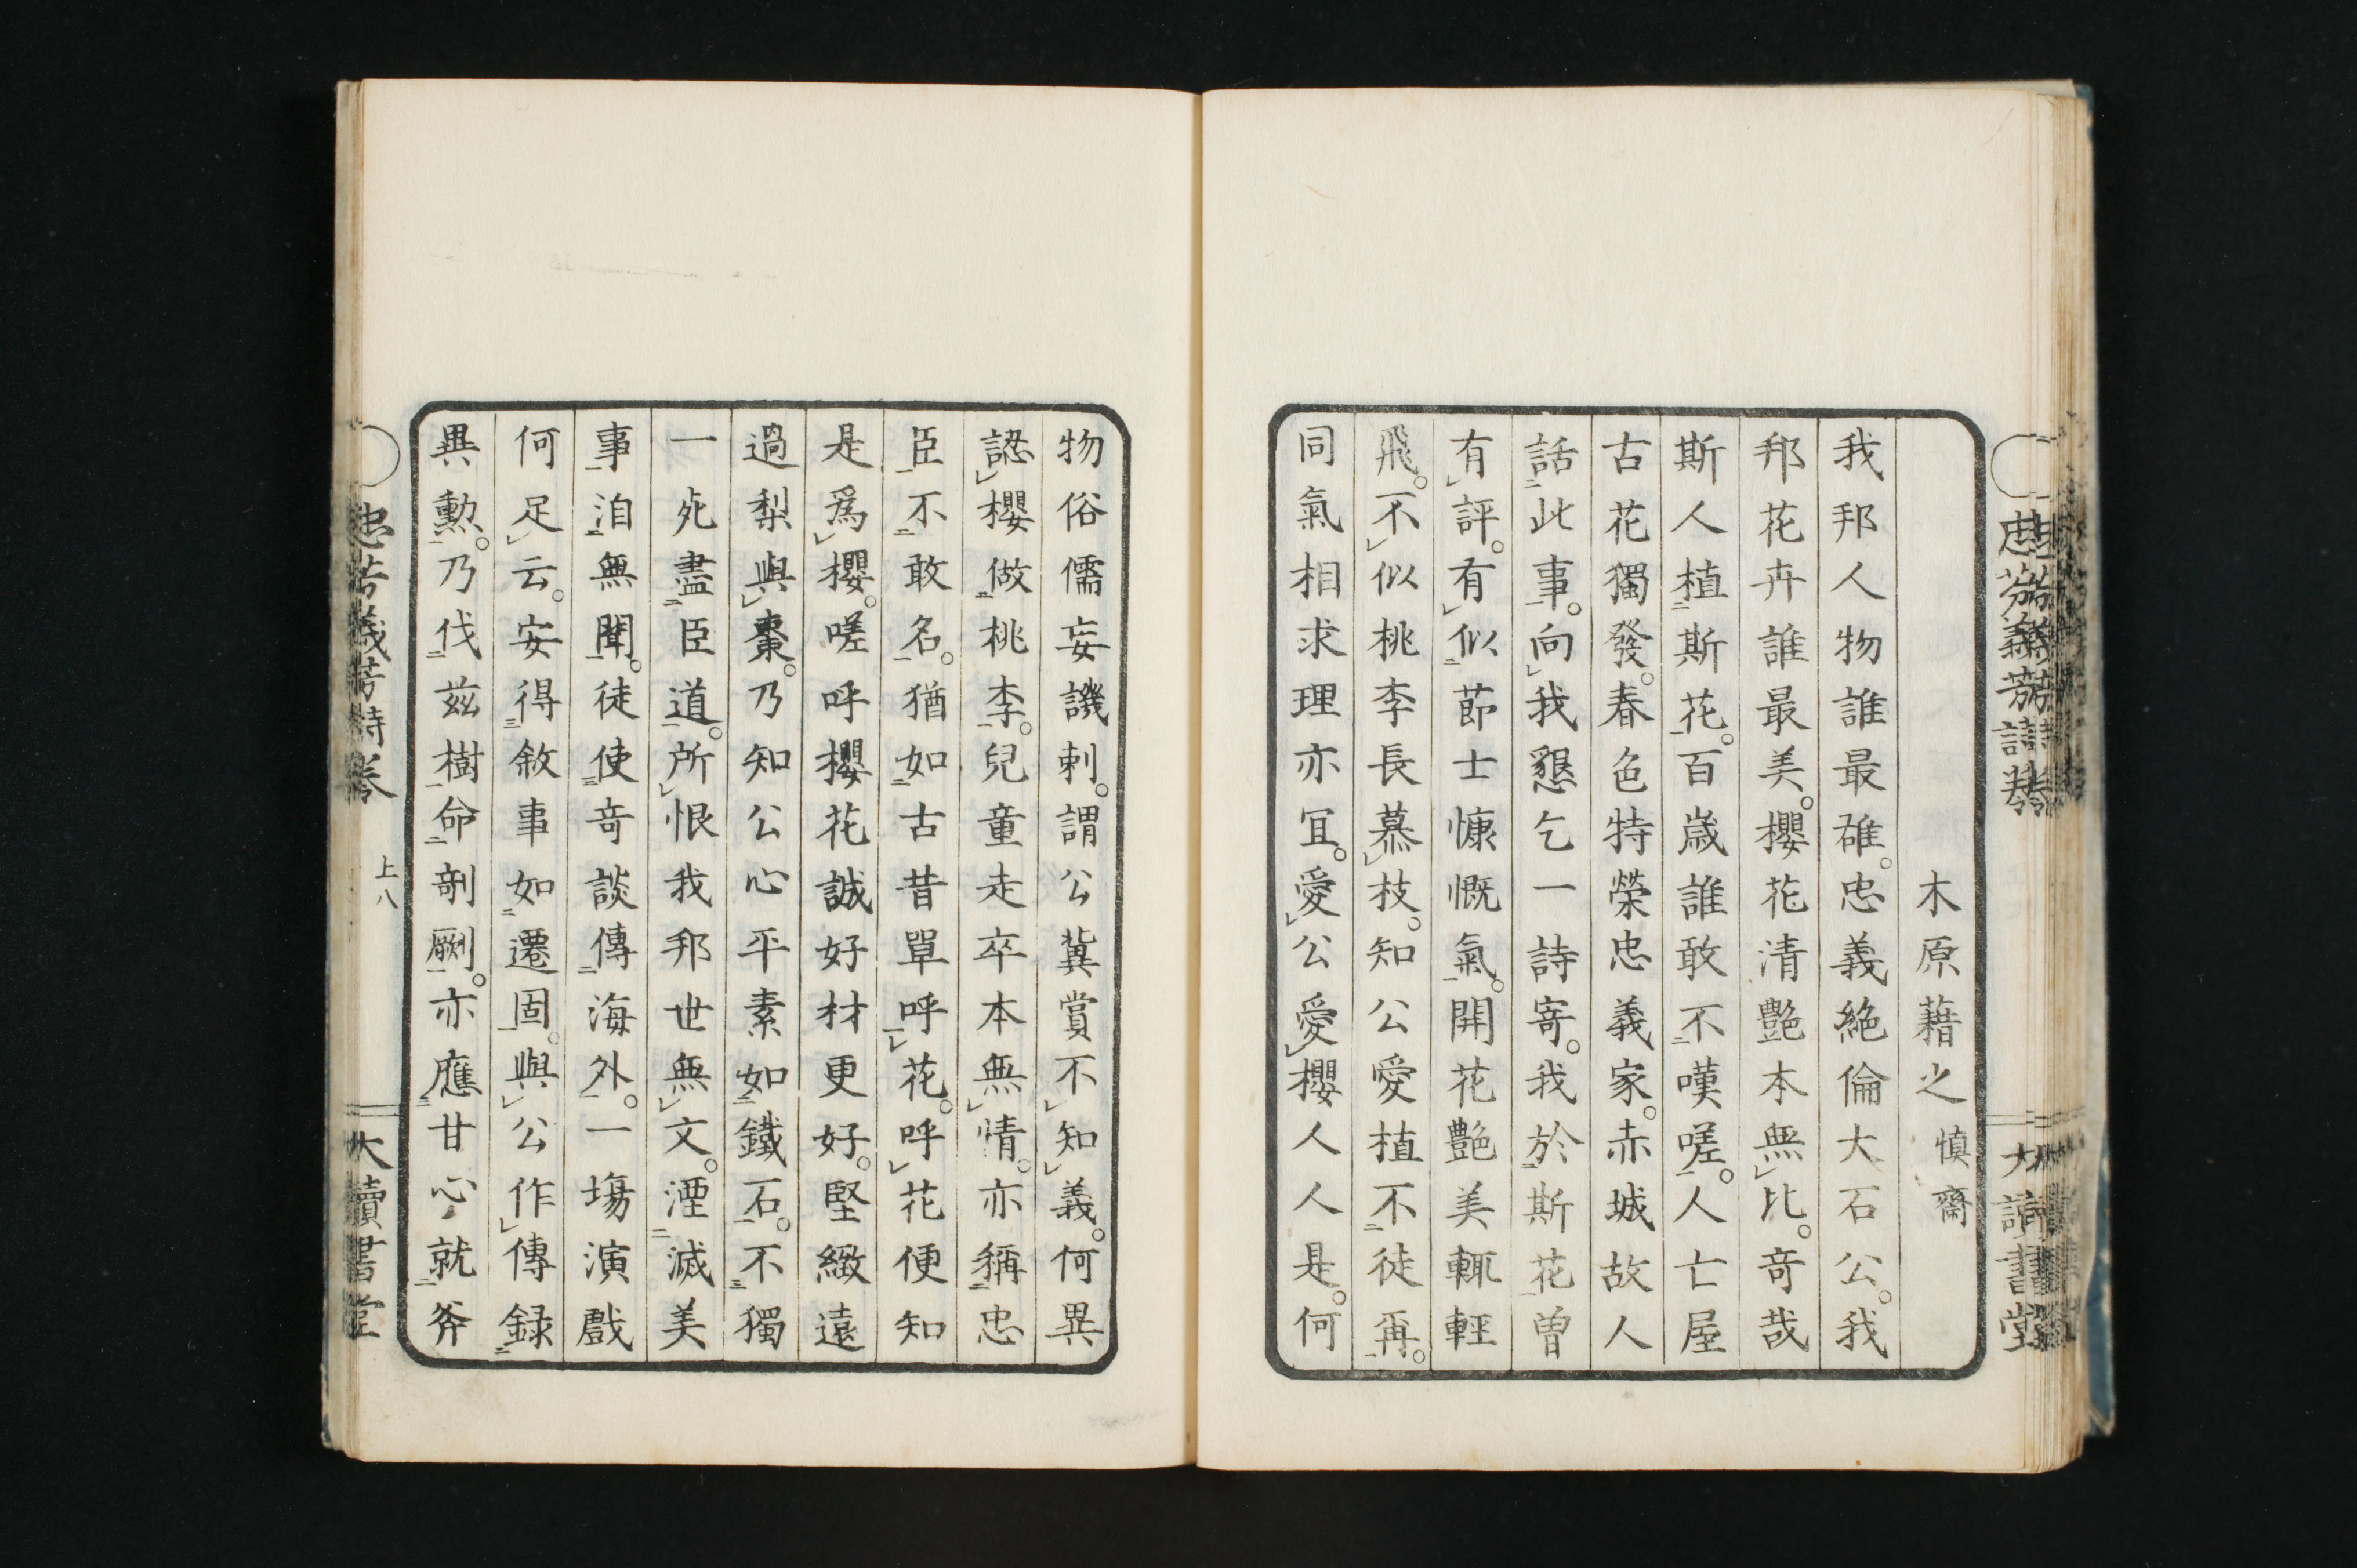 木原藉之慎齋
我邦人物誰最雄。忠義絶倫大石公。我
邦花卉誰最美。櫻花清艶本無比。奇哉
斯人植斯花。百歳誰敢不嘆嗟。人亡屋
古花獨發。春色特榮忠義家。赤城故人
話此事。向我懇乞一詩寄。我於斯花曽
有評。有似節士慷慨氣。開花艶美輒輕
飛。不似桃李長慕枝。知公愛植不徒再。
同氣相求理亦冝。愛公愛櫻人人是。何
物俗儒妄譏刺。謂公糞賞不知義。何異
認櫻做桃李。兒童走卒本無情。亦稱忠
臣不敢名。猶如古昔單呼花。呼花便知
是爲櫻。嗟呼櫻花誠好材更好。堅緻遠
過梨與棗。乃知公心平素如鐵石。不獨
一死盡臣道。所恨我邦世無文。湮滅美
事洎無聞。徒使奇談傳海外。一塲演戲
何足云。安得敘事如遷固。與公作傳録
異勲。乃伐茲樹命剞劂。亦應甘心就斧
忠芳義芳詩巻
上八
大讀書堂